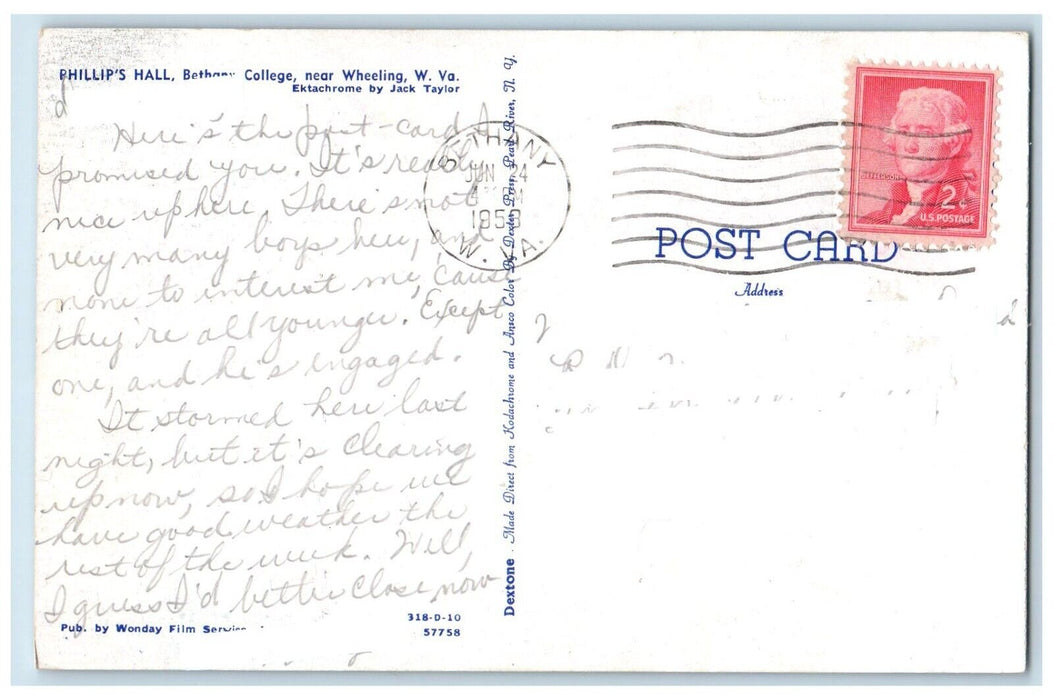 PHILLIP'S HALL, Bethany College, near Wheeling, W. Va.
Ektachrome by Jack Taylor
Here's the post-card I
promised you. It's really
nice up here. There's not
very many boys here, and
none to interest me, 'cause
they're all younger. Except
one, and he's engaged.
It stormed here last
night, but it's clearing
up now, so I hope we
have good weather the
rest of the week. Well,
I guess I'd better close now
Pub. by Wonday Film Service
318-D-10
57758
Dextone . Made Direct from Kodachrome and Ansco Color By Dexter Press, Pearl River, N. Y.
BETHANY
JUN 24
PM
1958
W. VA.
JEFFERSON
2¢
U.S. POSTAGE
POST CARD
Address